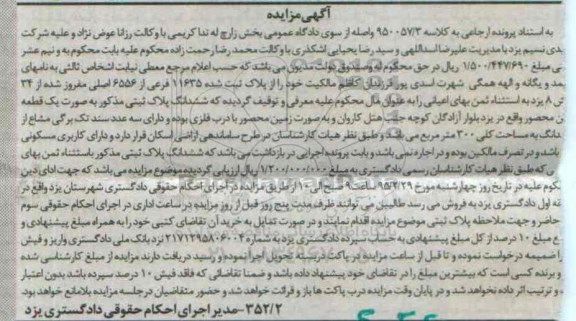 آگهی مزایده
به استناد پرونده ارجاعی به کلاسه ۹۵۰۰۵۷/۳ واصله از سوی دادگاه عمومی بخش زارچ له ندا کریمی با وکالت رزانا عوض نژاد و علیه شرکت
بدی نسیم یزد با مدیریت علیرضا اسداللهی و سید رضا یحیایی اشکذری با وکالت محمد رضا رحمت زاده محکوم علیه بابت محکوم به و نیم عشر
تی مبلغ ۱/۵۰۰/۴۴۷/۶۹۰ ریال در حق محکوم له و صندوق دولت مدیون می باشد که حسب اعلام مرجع معطی نیابت اشخاص ثالثی به نامهای
مد و یگانه و الهه همگی شهرت اسدی پور فرزندان کاظم مالکیت خود را از پلاک ثبت شده ۱۱۶۳۵ فرعی از ۶۵۵۶ اصلی مفروز شده از ۳۴
ش ۸ یزد به استثناء ثمن بهای اعیانی را به عنوان مال محکوم علیه معرفی و توقیف گردیده که ششدانگ پلاک ثبتی مذکور به صورت یک قطعه
ن محصور واقع در یزد بلوار آزادگان کوچه جنب هتل کاروان و به صورت زمین محصور با درب فلزی بوده و دارای سه عدد سند تک برگی مشاع از
دانگ به مساحت کلی ۳۰۰ متر مربع می باشد و طبق نظر هیات کارشناسان در طرح ساماندهی اراضی اسکان قرار دارد و دارای کاربری مسکونی
باشد و در تصرف مالکین بوده و در اجاره نمی باشد و بابت پرونده اجرایی در بازداشت می باشد که ششدانگ پلاک ثبتی مذکور باستثناء ثمن بهای
ی که طبق نظر هیات کارشناسان رسمی دادگستری به مبلغ ۱/۲۰۰/۰۰۰/۰۰۰ ریال ارزیابی گردیده موضوع مزایده می باشد که جهت ادای دین
نکوم علیه در تاریخ روز چهارشنبه مورخ ۹۵/۴/۲۹ ساعت ۹ صبح الی ۱۰ از طریق مزایده در اجرای احکام حقوقی دادگستری شهرستان یزد واقع در
قه اول دادگستری یزد به فروش می رسد طالبین می توانند ظرف مدت پنج روز قبل از روز مزایده در ساعت اداری در اجرای احکام حقوقی سوم
حاضر و جهت ملاحظه پلاک ثبتی موضوع مزایده اقدام نمایند و در صورت تمایل به خرید آن تقاضای کتبی خود را به همراه مبلغ پیشنهادی و
غ مبلغ ۱۰ درصد از کل مبلغ پیشنهادی به حساب سپرده دادگستری یزد به شماره ۲۱۷۱۲۹۵۸۰۶۰۰۴ نزد بانک ملی دادگستری واریز و فیش
را ضمیمه درخواست نموده و تا قبل از ساعت مزایده در پاکت دربسته تحویل اجرا نموده و رسید دریافت دارند مزایده از مبلغ کارشناسی شده
و برنده کسی است که بیشترین مبلغ را در تقاضای خود پیشنهاد داده باشد و ضمنا تقاضائی که فاقد فیش ۱۰ درصد سپرده باشد بدون اعتبار
ه و ترتیب اثر داده نخواهد شد و در پایان وقت مزایده درب پاکت ها باز و قرائت خواهد شد و حضور متقاضیان در جلسه مزایده بلامانع خواهد بود
۳۵۲/۲- مدیر اجرای احکام حقوقی دادگستری یزد